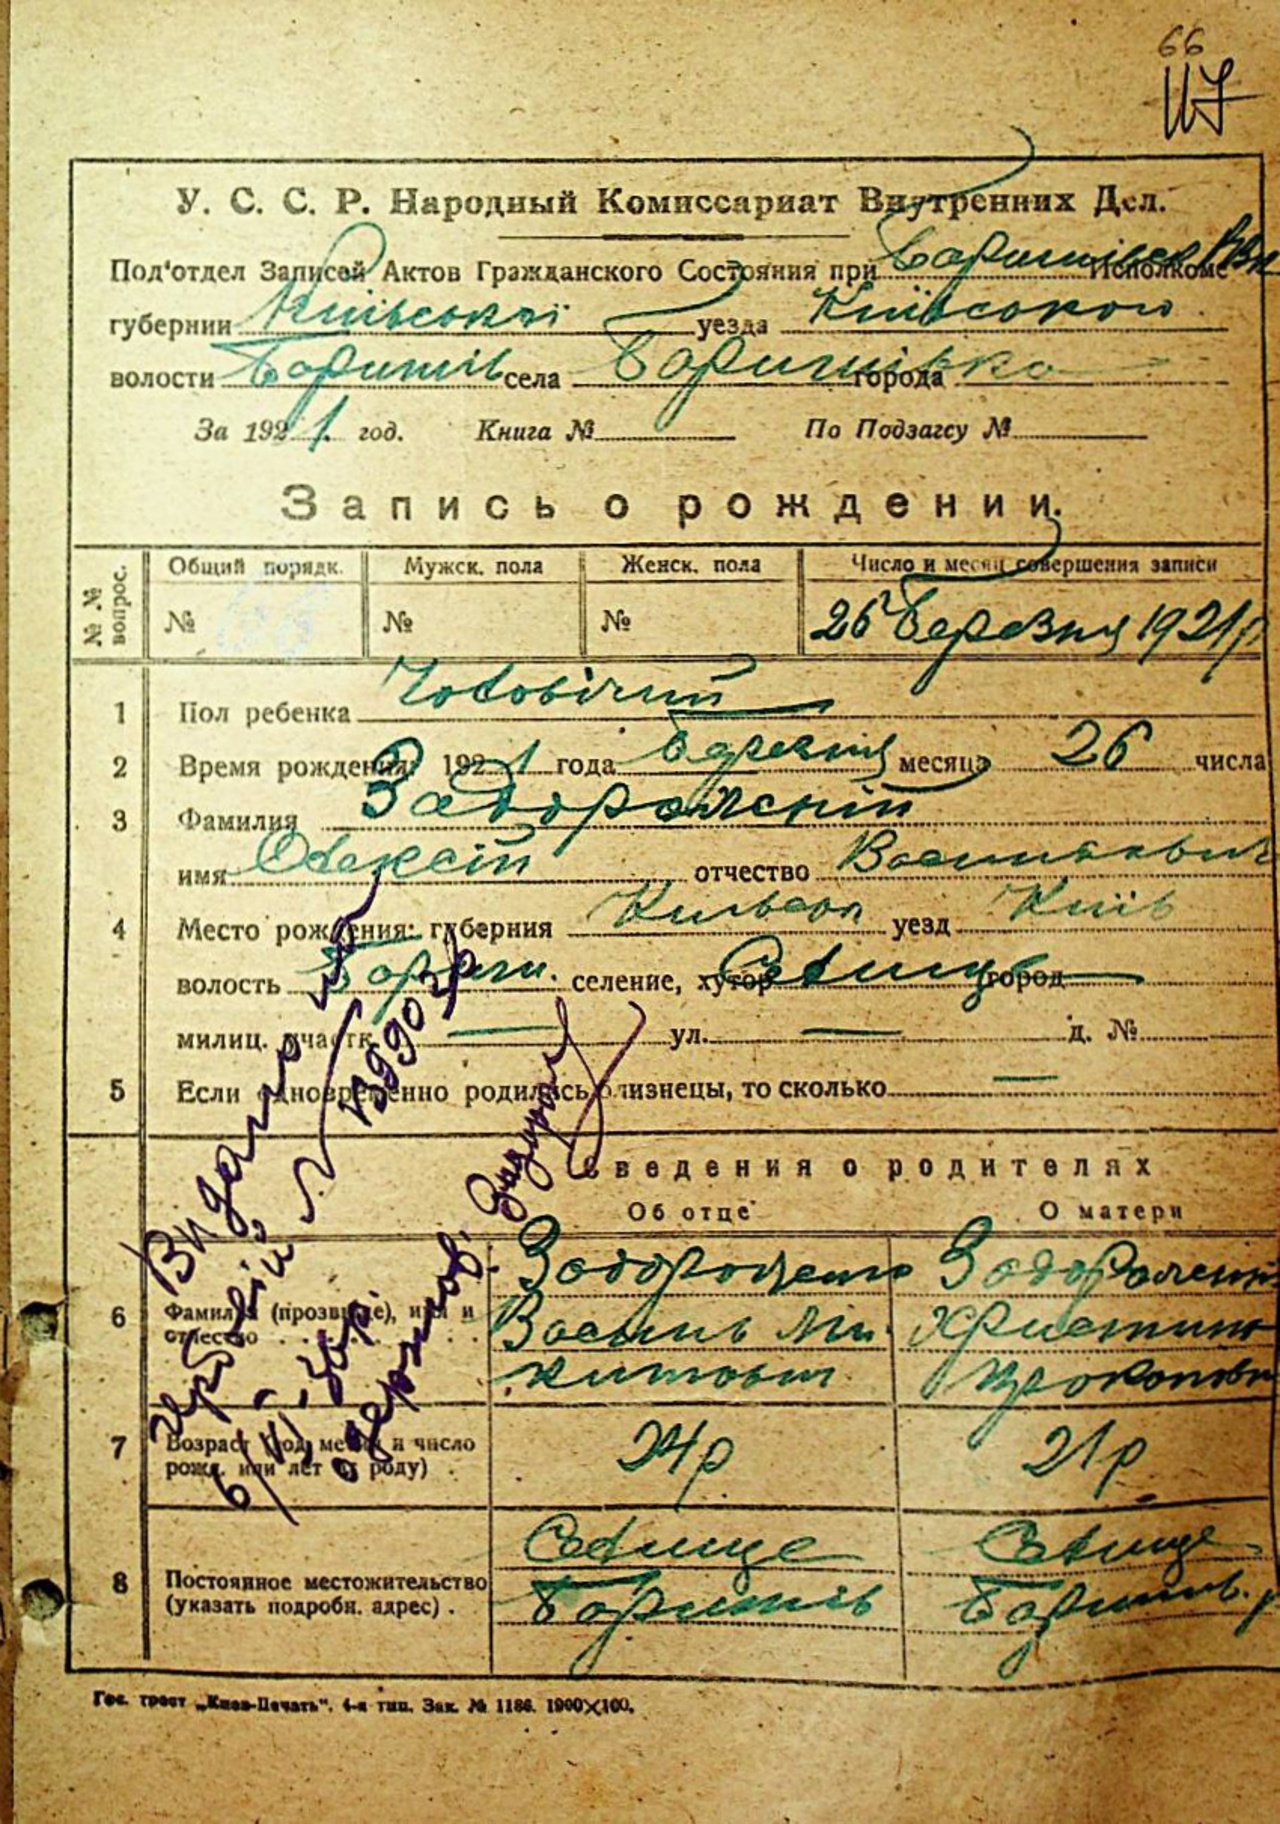 66
117
У. С. С. Р. Народный Комиссариат Внутренних Дел.
Под'отдел Записей Актов Гражданского Состояния при Исполкоме
губернии Київської уезда Київського
волости Баришів села Баришівка города
За 1921 год. Книга № По Подзагсу №
Запись о рождении.
№ № вопрос. Общий порядк. Мужск. пола Женск. пола Число и месяц совершения записи
№ 66 № № 26 Березня 1921 р
1 Пол ребенка Чоловічий
2 Время рождения 1921 года Березня месяца 26 числа
3 Фамилия Задорожній
имя Олексій отчество Васильович
4 Место рождения: губерния уезд Київ
волость Бориш. селение, хутор Селище город
милиц. участк. — ул. — д. №
5 Если одновременно родились близнецы, то сколько —
Сведения о родителях
Об отце О матери
6 Фамилия (прозвище), имя и отчество
Задорожній
Василь Ми
китович
Христина
7 Возраст (год, месяц и число рожд. или лет от роду) 24 р 21 р
8 Постоянное местожительство (указать подробн. адрес)
Селище Селище
Баришів Баришів. р
Видано
6/VI
Гос. трест „Киев-Печать". 4-я тип. Зак. № 1186. 1900×100.